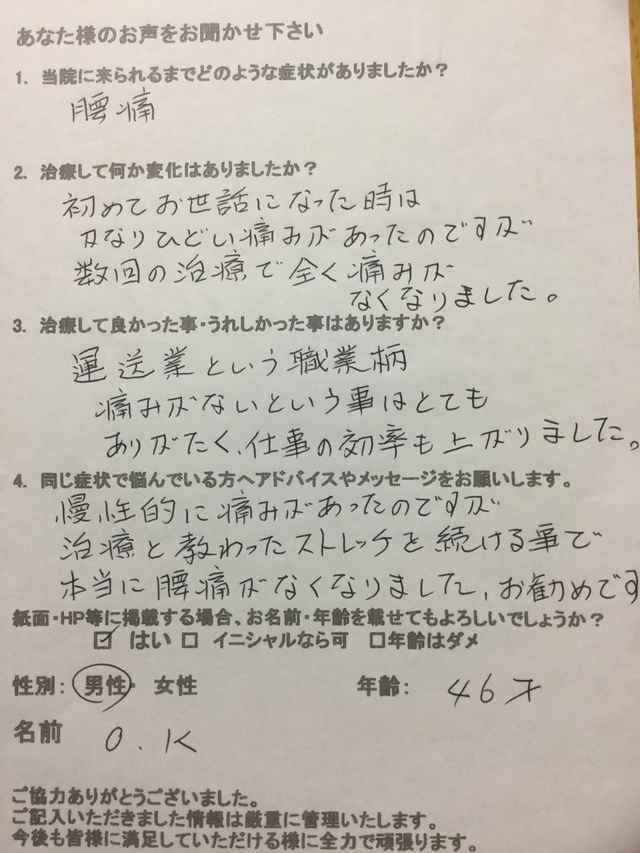 あなた様のお声をお聞かせ下さい
1. 当院に来られるまでどのような症状がありましたか？
腰痛
2. 治療して何か変化はありましたか？
初めてお世話になった時は
かなりひどい痛みがあったのですが
数回の治療で全く痛みが
なくなりました。
3. 治療して良かった事・うれしかった事はありますか？
運送業という職業柄
痛みがないという事はとても
ありがたく、仕事の効率も上がりました。
4. 同じ症状で悩んでいる方へアドバイスやメッセージをお願いします。
慢性的に痛みがあったのですが
治療と教わったストレッチを続ける事で
本当に腰痛がなくなりました、お勧めです
紙面・HP等に掲載する場合、お名前・年齢を載せてもよろしいでしょうか？
☑ はい □ イニシャルなら可 □年齢はダメ
性別： 男性・ 女性 年齢： 46才
名前 O.K
ご協力ありがとうございました。
ご記入いただきました情報は厳重に管理いたします。
今後も皆様に満足していただける様に全力で頑張ります。